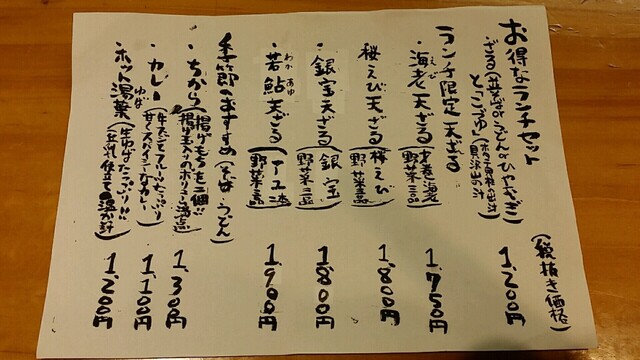 お得なランチセット
(税抜き価格)
ざる(並そば or うどん or ひやむぎ) 1,200円
とこごづゆ
ランチ限定天ざる
海老天ざる(才巻海老 野菜三品) 1,750円
えび
桜えび天ざる(桜えび 野菜三品) 1,800円
銀宝天ざる(銀宝 野菜二品) 1,800円
若鮎天ざる(アユ二本 野菜三品) 1,900円
わかあゆ
季節のおすすめ(そば・うどん)
・ちから(揚げもちを二個!! 揚げ玉入りのボリューム満点) 1,300円
・カレー(牛スジとフルーツたっぷり 甘くスパイシーなカレー) 1,100円
・ホット湯葉(生ゆばたっぷり!! 豆乳仕立ての温か汁) 1,200円
ゆば